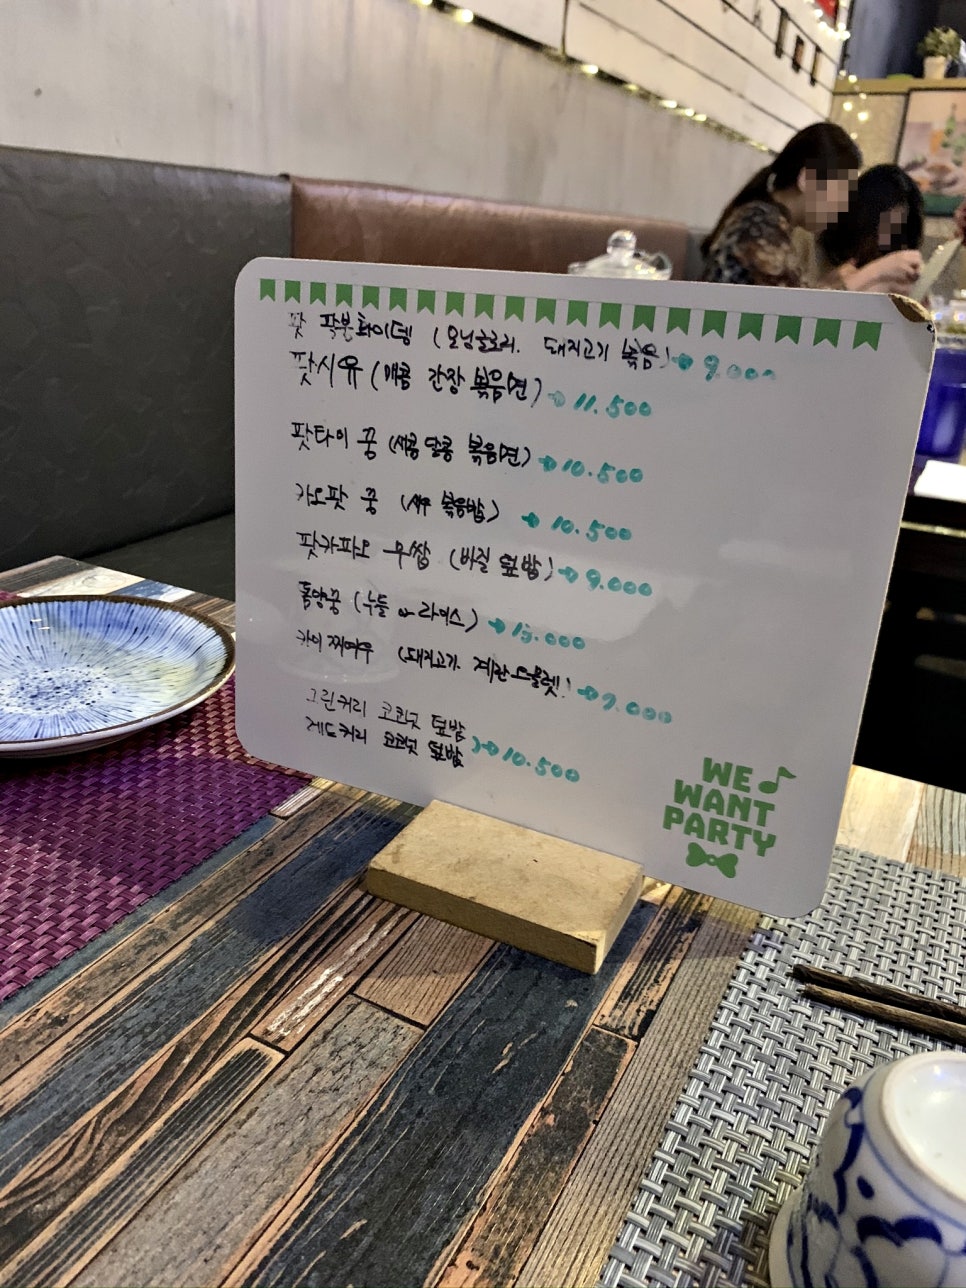 팟 팍붕화이뎅 (모닝글로리. 돼지고기 볶음) → 9.000
팟시유 (매콤 간장 볶음면) → 11.500
팟타이 꿍 (새콤달콤 볶음면) → 10.500
카오팟 꿍 (새우 볶음밥) → 10.500
팟카파오 무쌉 (바질 덮밥) → 9.000
똠양꿍 (누들 or 라이스) → 15.000
카이 찌여우 (돼지고기 계란오믈렛) → 9.000
그린커리 코코넛 덮밥
레드커리 코코넛 덮밥 ) → 10.500
WE
WANT
PARTY